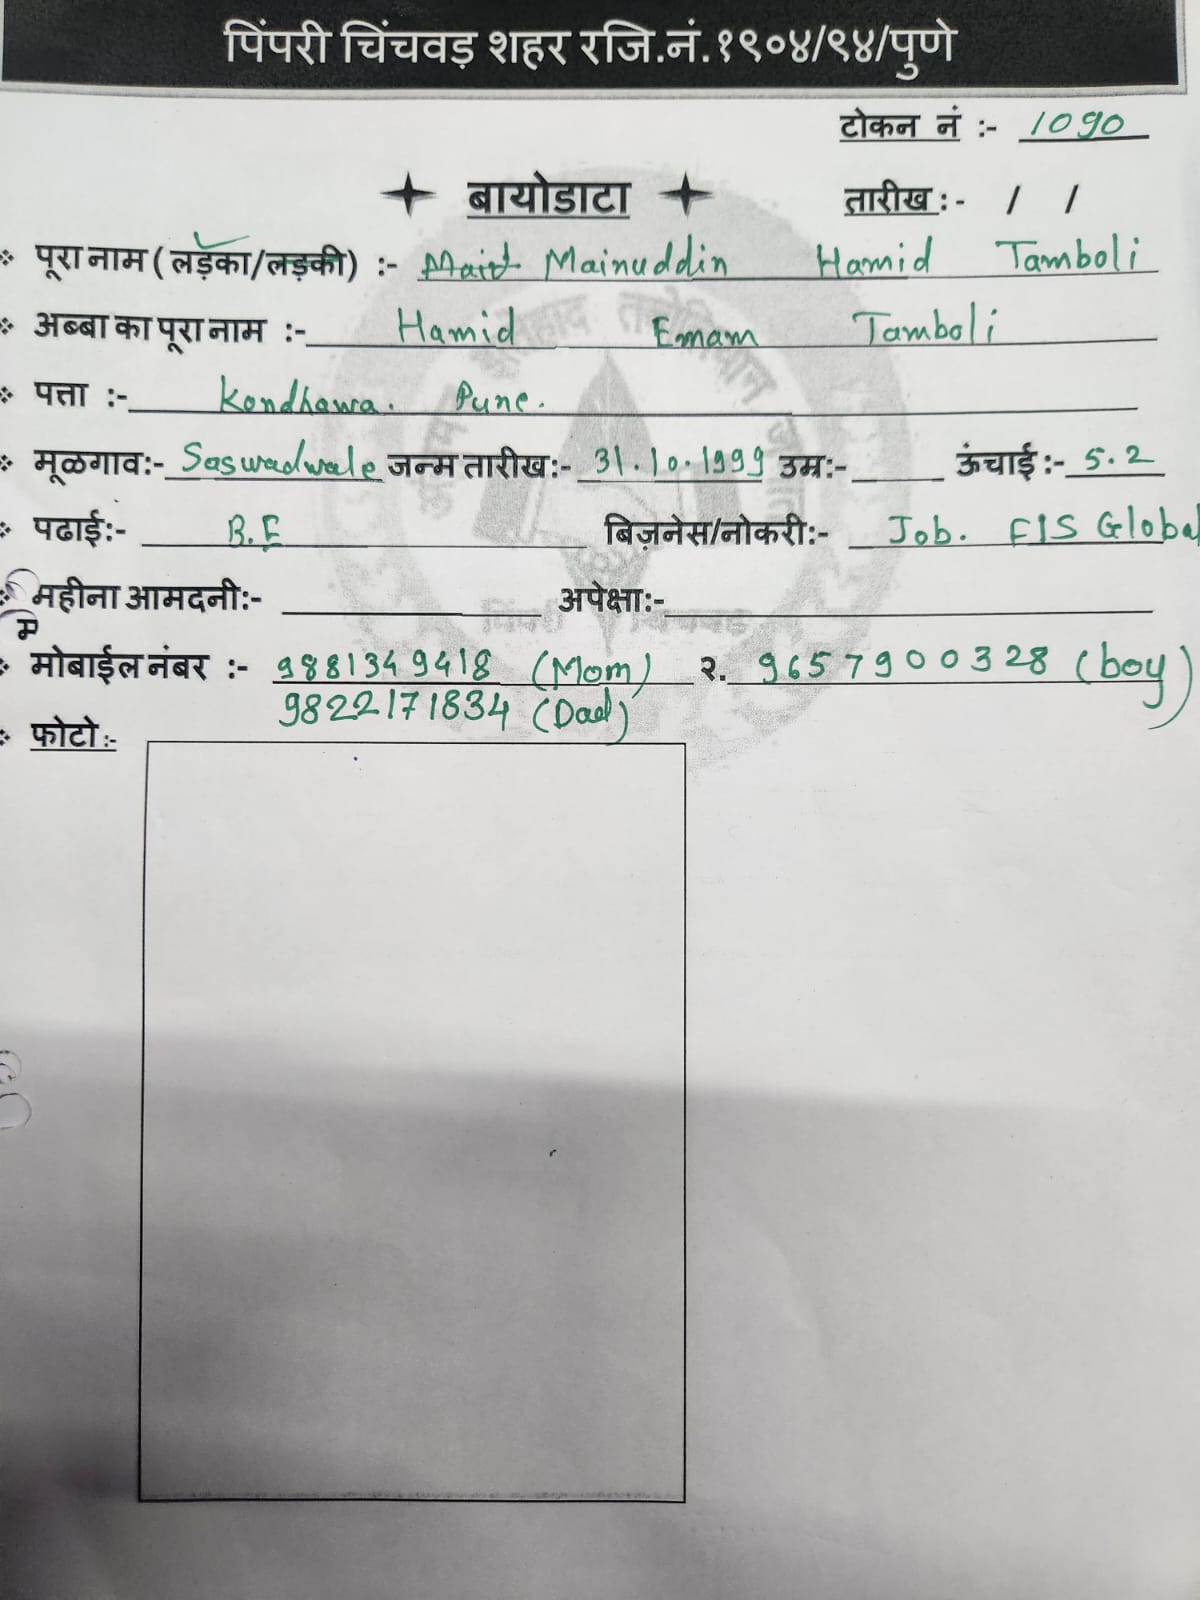 पिंपरी चिंचवड़ शहर रजि.नं.१९०४/९४/पुणे
टोकन नं :- 1090
बायोडाटा
तारीख :- / /
पूरा नाम ( लड़का/लड़की) :- Mainuddin Hamid Tamboli
अब्बा का पूरा नाम :- Hamid Emam Tamboli
पत्ता :- Kondhawa. Pune.
मूळगाव:- Saswadwale जन्म तारीख:- 31.10.1999 उम्र:- ऊंचाई :- 5.2
पढाई:- B.E बिज़नेस/नोकरी:- Job. FIS Global
महीना आमदनी:- अपेक्षा:-
म
मोबाईल नंबर :- 9881349418 (Mom) २. 9657900328 (boy)
9822171834 (Dad)
फोटो :-